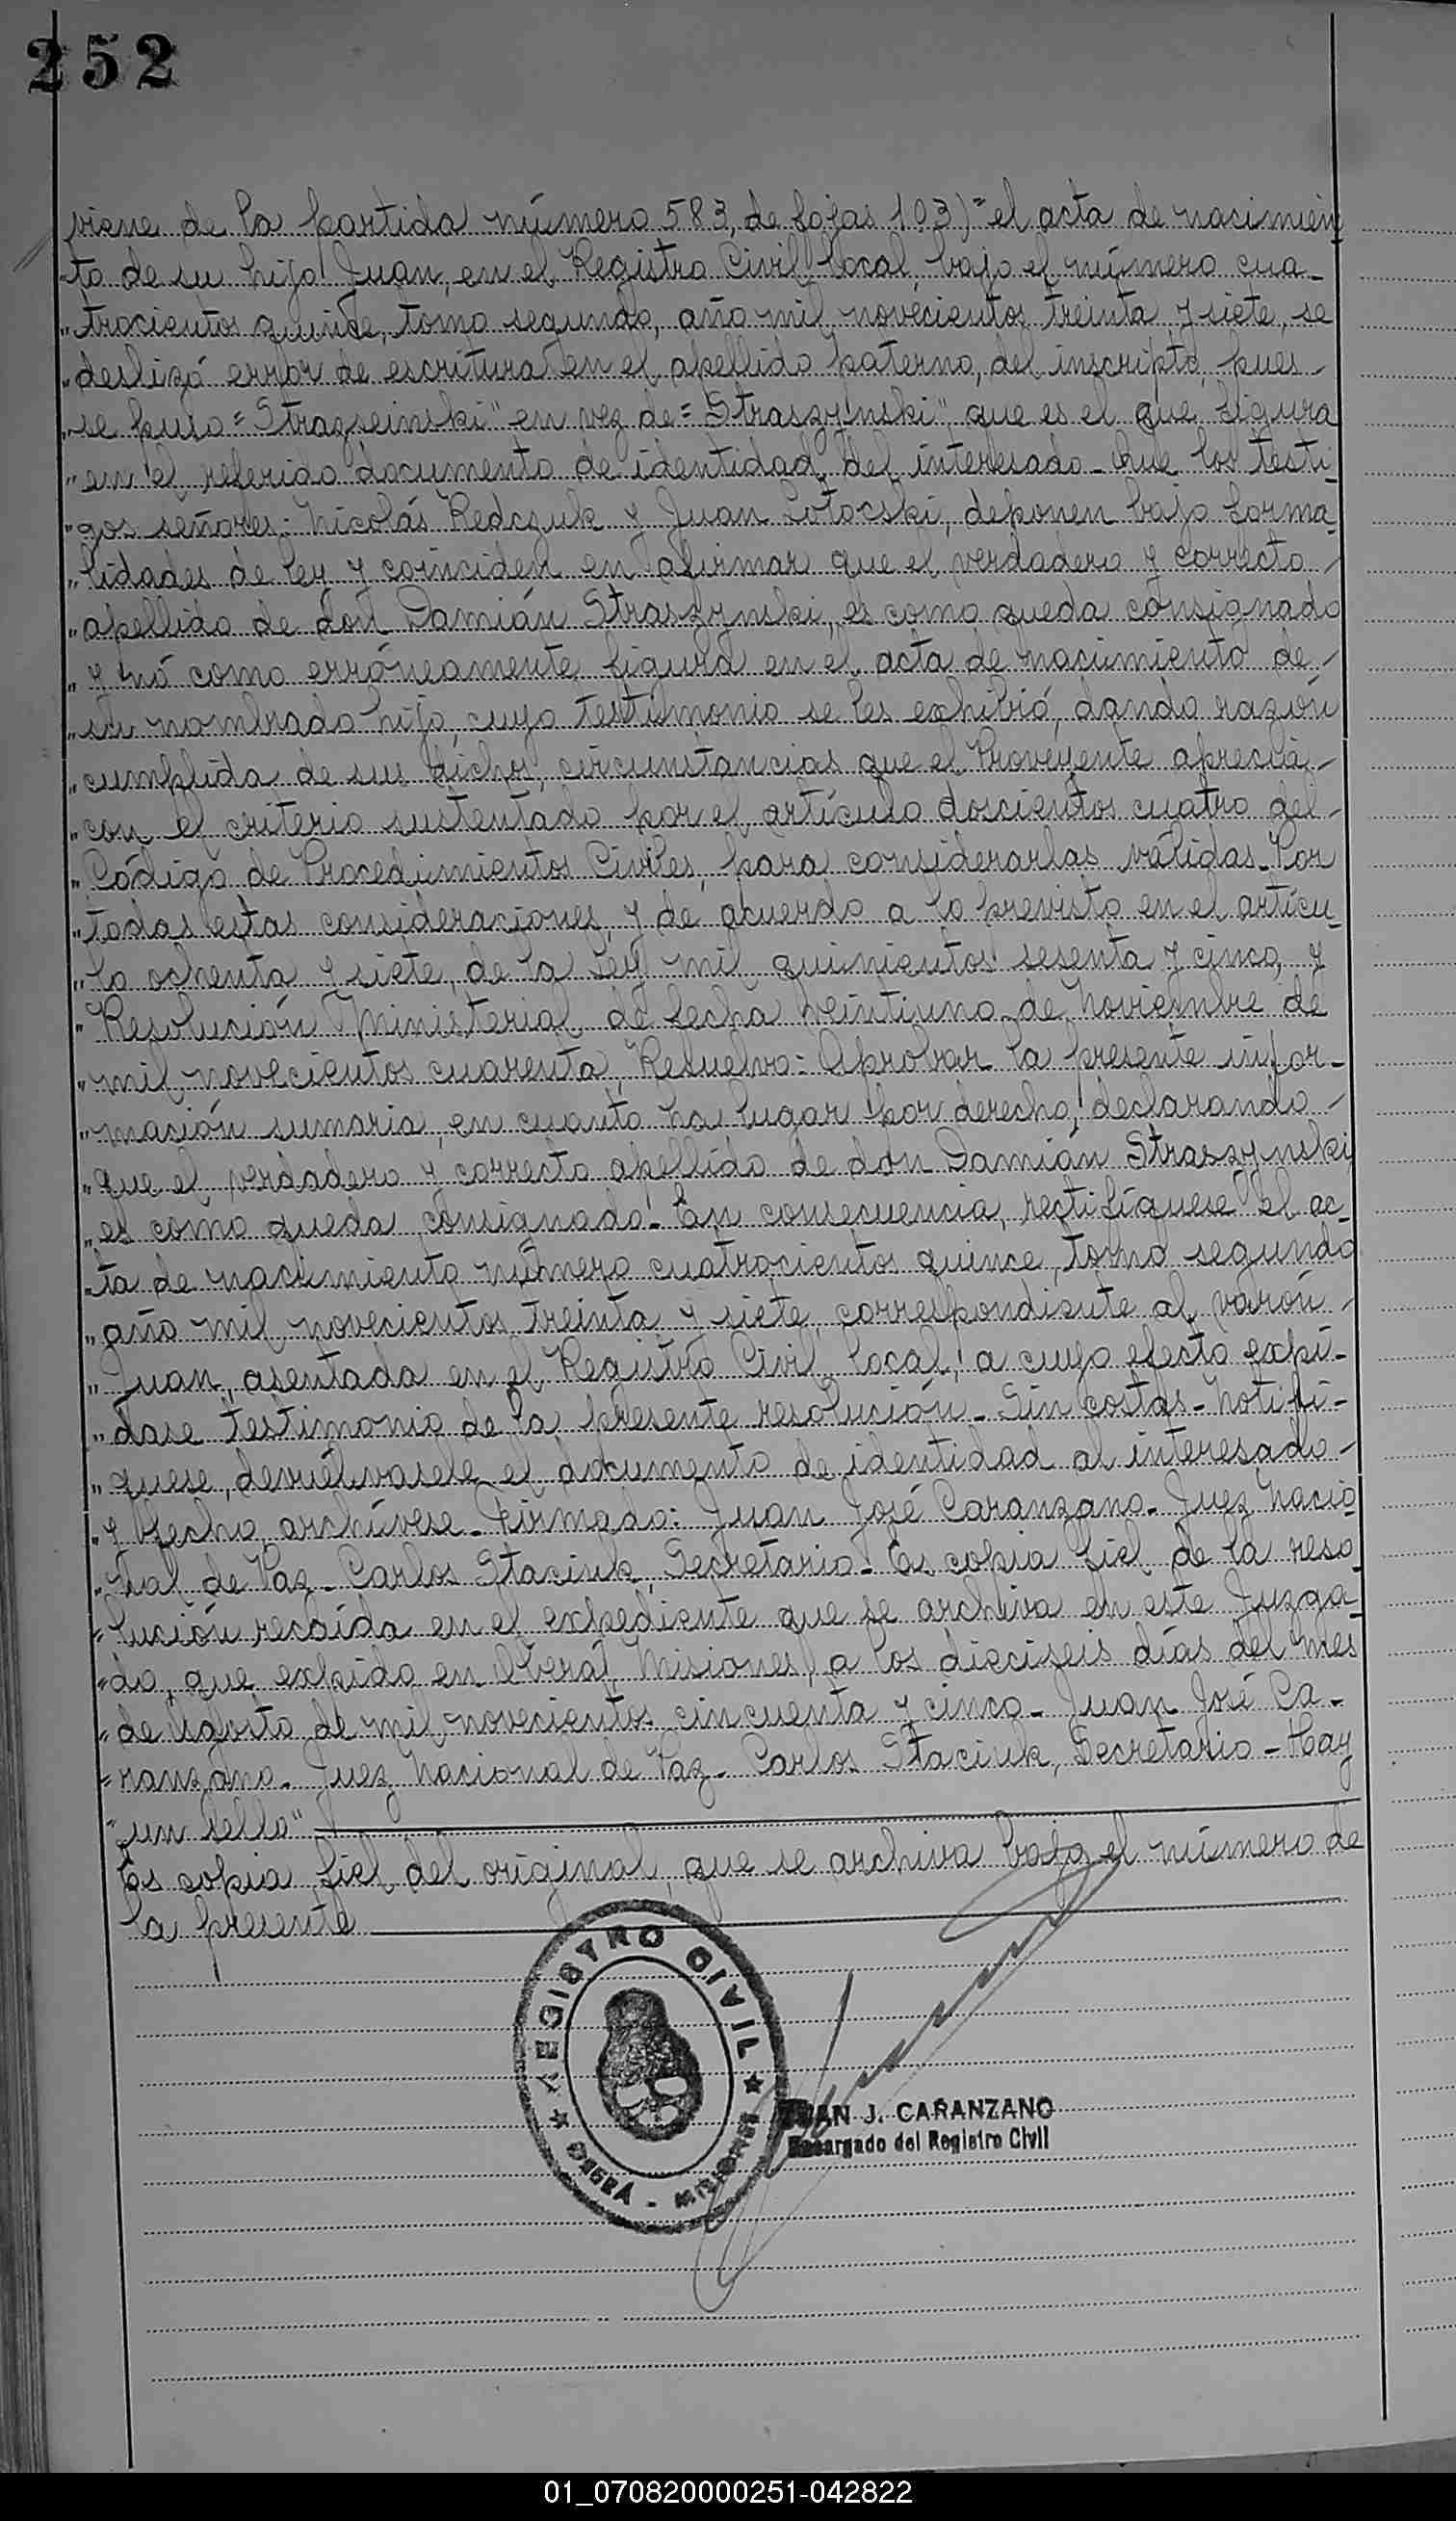 252
viene de la partida número 583, de fojas 103)" el acta de nacimien
"to de su hijo Juan, en el Registro Civil local, bajo el número cua-
"trocientos quince, tomo segundo, año mil novecientos treinta y siete, se
"deslizó error de escritura en el apellido paterno, del inscripto, pues-
"se puso = Strazseinski" en vez de = Straszynski", que es el que figura
"en el referido documento de identidad del interesado - Que los testi
"gos señores: Nicolás Redczuk y Juan Lotocski, deponen bajo forma-
"lidades de ley y coinciden en afirmar que el verdadero y correcto -
"apellido de don Damián Straszynski, es como queda consignado
"y nó como erróneamente figura en el acta de nacimiento de -
"su nombrado hijo, cuyo testimonio se les exhibió, dando razón
"cumplida de sus dichos, circunstancias que el Proveyente aprecia -
"con el criterio sustentado por el artículo doscientos cuatro del -
"Código de Procedimientos Civiles, para considerarlas válidas - Por
"todas estas consideraciones, y de acuerdo a lo previsto en el artícu-
"lo ochenta y siete, de la Ley mil quinientos sesenta y cinco, y
"Resolución Ministerial de fecha veintiuno de Noviembre de
"mil novecientos cuarenta, Resuelvo: Aprobar la presente infor-
"mación sumaria, en cuanto ha lugar por derecho, declarando -
"que el verdadero y correcto apellido de don Damián Straszynski
"es como queda consignado - En consecuencia, rectifíquese el ac-
"ta de nacimiento número cuatrocientos quince, tomo segundo
"año mil novecientos treinta y siete, correspondiente al varón -
"Juan, asentada en el Registro Civil local, a cuyo efecto expí-
"dase testimonio de la presente resolución - Sin costas - Notifí-
"quese, devuélvasele el documento de identidad al interesado -
"y hecho, archívese - Firmado: Juan José Caranzano - Juez Nacio
"nal de Paz - Carlos Staciuk, Secretario - Es copia fiel de la reso
"lución recaída en el expediente que se archiva en este Juzga-
"do, que expido en Oberá, Misiones, a los dieciseis días del mes
"de Agosto de mil novecientos cincuenta y cinco - Juan José Ca-
"ranzano - Juez Nacional de Paz - Carlos Staciuk, Secretario - Hay
"un sello"
Es copia fiel del original, que se archiva bajo el número de
la presente
REGISTRO CIVIL
OBERA - MISIONES
JUAN J. CARANZANO
Encargado del Registro Civil
01_070820000251-042822